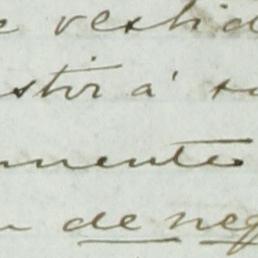 e vestid
stir á s
mente
de neg